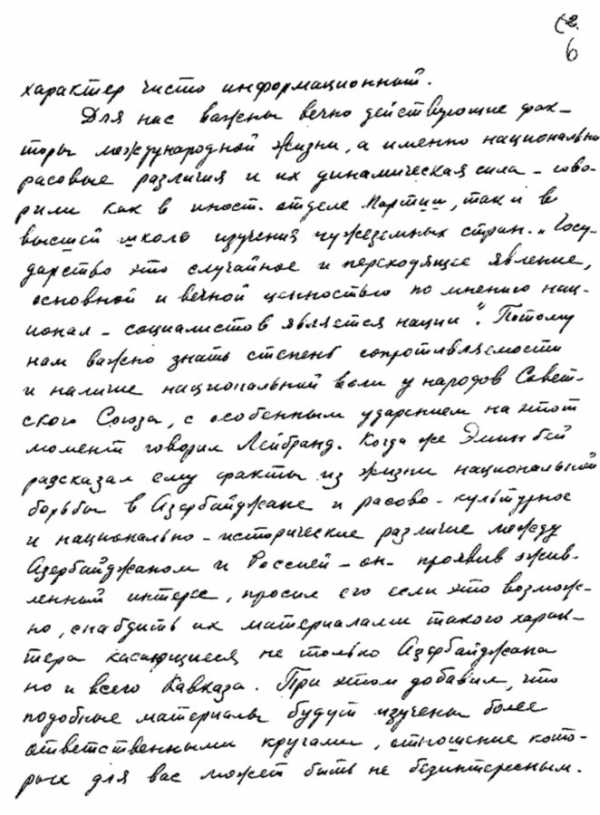 (2.
6
характер чисто информационный.
Для нас важны вечно действующие фак-
торы международной жизни, а именно национально
расовые различия и их динамическая сила – гово-
рили как в иност. отделе Партии, так и в
высшей школе изучения чужеземных стран. „Госу-
дарство это случайное и переходящее явление,
основной и вечной ценностью по мнению нац-
ионал – социалистов является нации“. Потому
нам важно знать степень сопротивляемости
и наличие национальной воли у народов Совет-
ского Союза, с особенным ударением на этот
момент говорил Лейбранд. Когда же Эмин бей
рассказал ему факты из жизни национальной
борьбы в Азербайджане и расово-культурное
и национально-исторические различие между
Азербайджаном и Россией – он – проявив ожив-
ленный интерес, просил его если это возмож-
но, снабдить их материалами такого харак-
тера касающиеся не только Азербайджана
но и всего Кавказа. При этом добавил, что
подобные материалы будут изучены более
ответственными кругами, отношение кото-
рых для вас может быть не безинтересным.